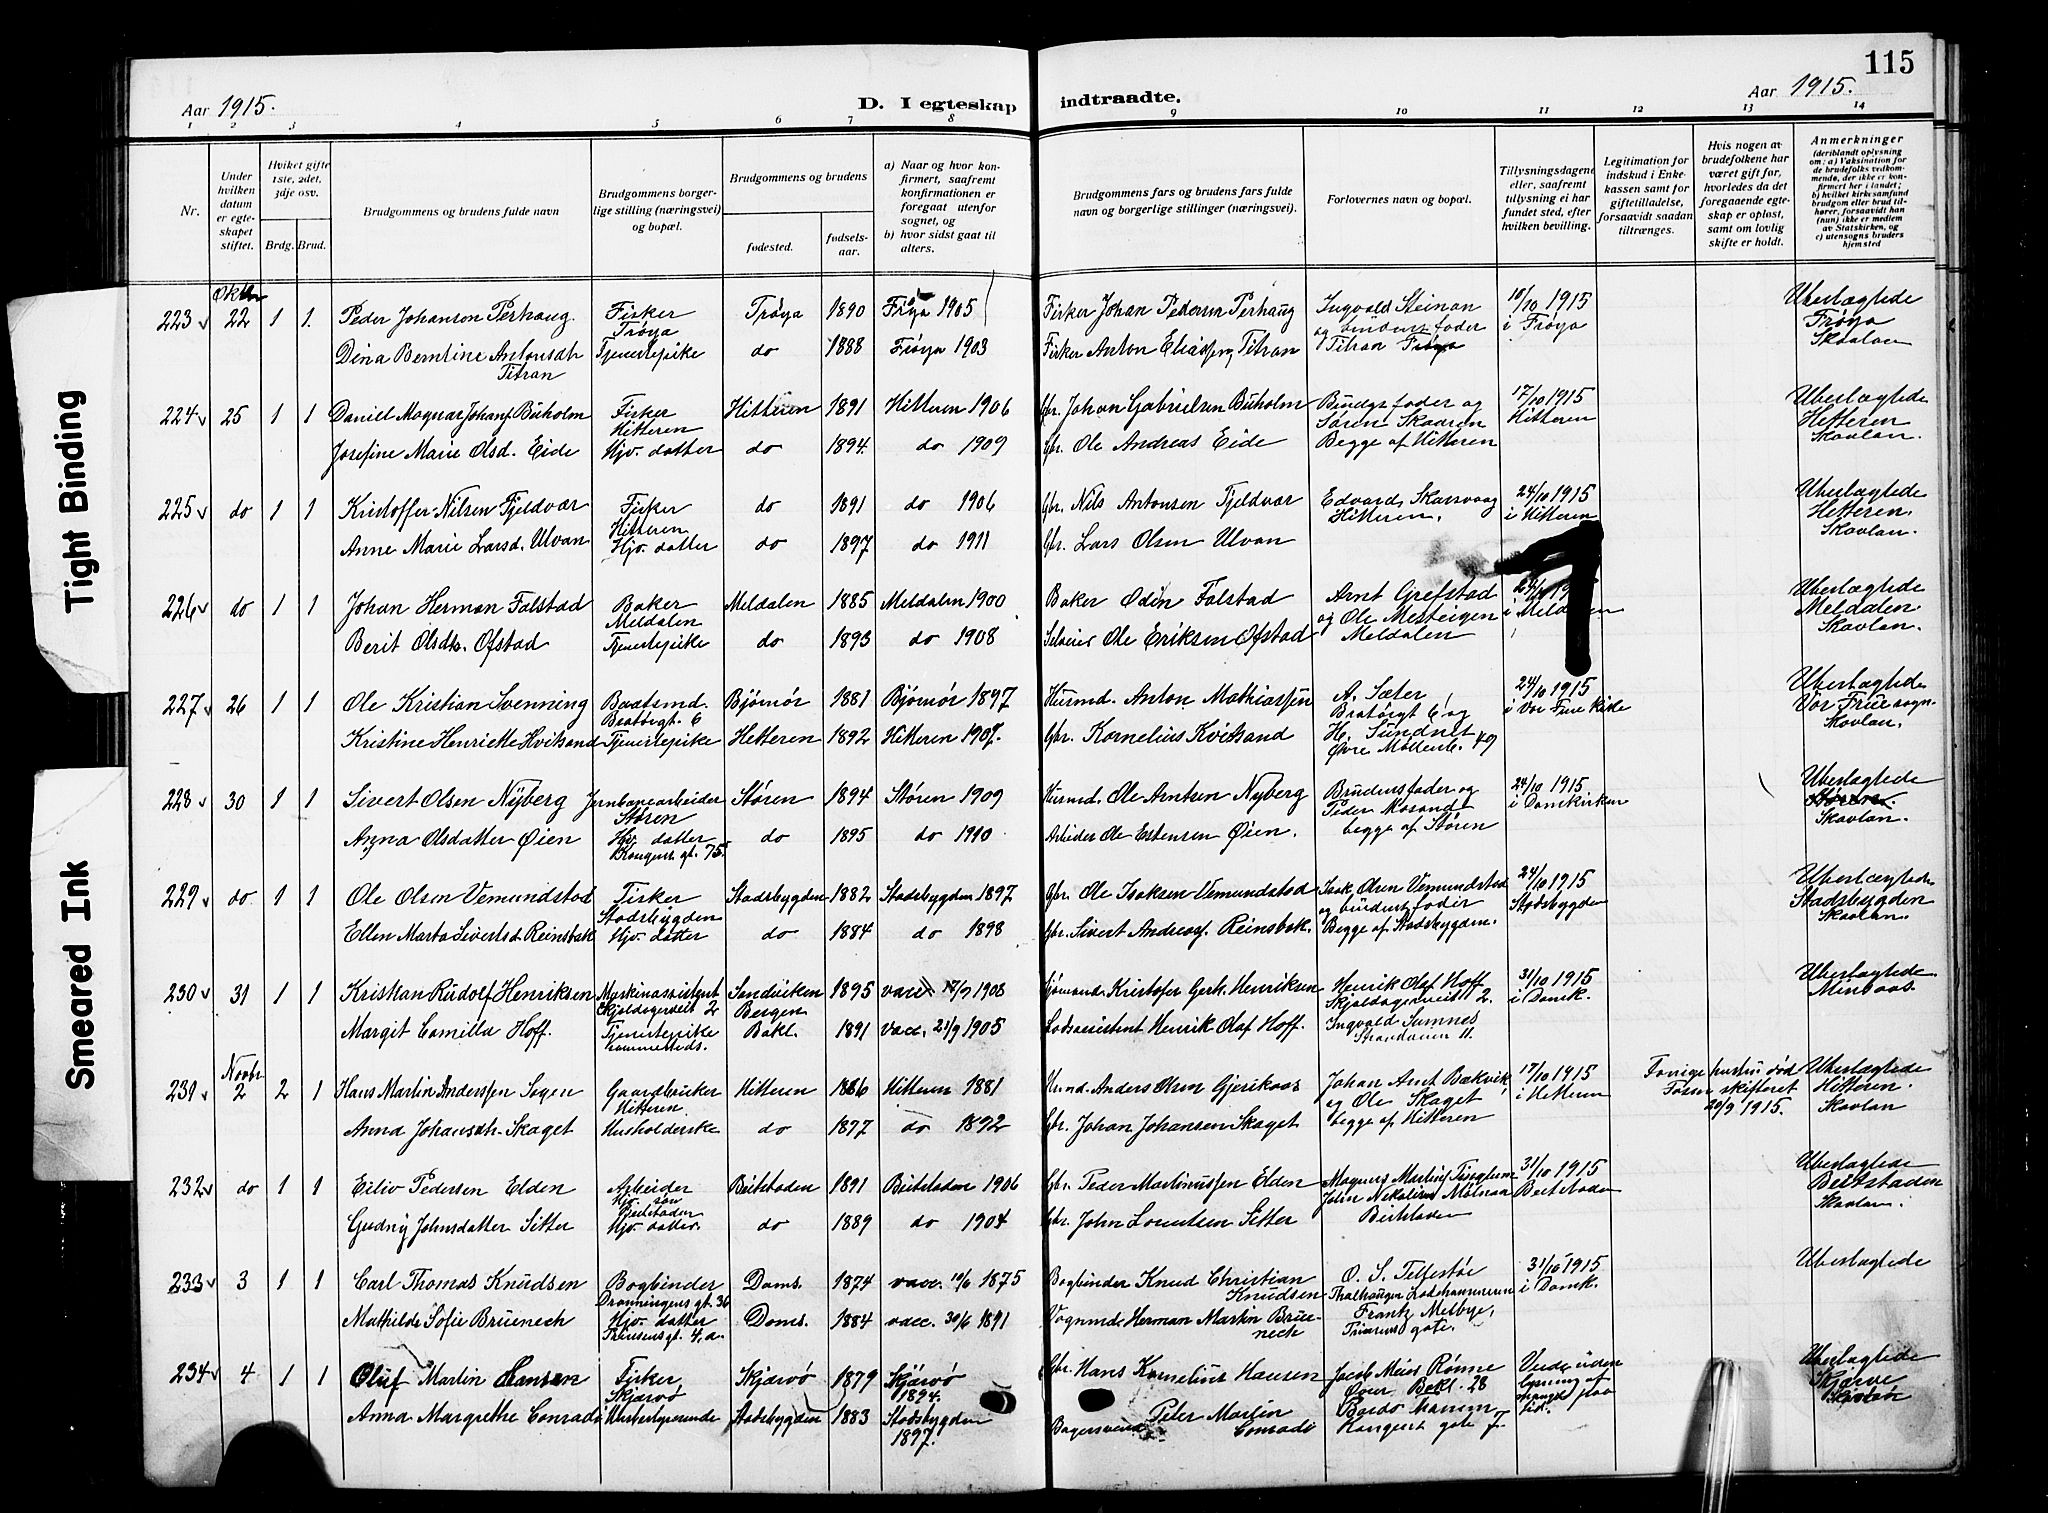 115
Aar 1915.
D. I egteskap indtraadte.
Aar 1915.
1 2 3 4 5 6 7 8 9 10 11 12 13 14
Nr.
Under hvilken datum er egteskapet stiftet.
Hvilket gifte 1ste, 2det, 3dje osv.
Brdg. Brud.
Brudgommens og brudens fulde navn
Brudgommens borgerlige stilling (næringsvei) og bopæl.
Brudgommens og brudens
fødested.
fødselsaar.
a) Naar og hvor konfirmert, saafremt konfirmationen er foregaat utenfor sognet, og
b) hvor sidst gaat til alters.
Brudgommens fars og brudens fars fulde navn og borgerlige stillinger (næringsvei).
Forlovernes navn og bopæl.
Tillysningsdagene eller, saafremt tillysning ei har fundet sted, efter hvilken bevilling.
Legitimation for indskud i Enkekassen samt for giftetilladelse, forsaavidt saadan tiltrænges.
Hvis nogen av brudefolkene har været gift før, hvorledes da det foregaaende egteskap er opløst, samt om lovlig skifte er holdt.
Anmerkninger
(deriblandt oplysning om: a) Vaksination for de brudefolks vedkommende, der ikke er konfirmert her i landet; b) hvilket kirkesamfund brudgom eller brud tilhører, forsaavidt han (hun) ikke er medlem av Statskirken, og c) utensogns bruders hjemsted
Oktbr
223 22 1 1. Peder Johanson Perhaug. Fisker Frøya Frøya 1890 Frøya 1905 Fisker Johan Pedersen Perhaug Ingvald Steinan og brudens fader Titran Frøya 10/10 1915 i Frøya Uberlagtede Frøya Skavlan
Dina Berntine Antonsdt. Titran Tjenestepike do 1888 Frøya 1903 Fisker Anton Eliassen Titran
224 25 1 1 Daniel Magnus Johans. Buholm Fisker Hitteren Hitteren 1891 Hitteren 1906 Gbr. Johan Gabrielsen Buholm Brudgs fader og Søren Skaaren Begge af Hitteren 17/10 1915 Hitteren Uberlagtede Hitteren Skavlan.
Josefine Marie Olsd. Eide Hjv. datter do 1894. do 1909 Gbr. Ole Andreas Eide
225 do 1 1 Kristoffer Nilsen Fjeldvær Fisker Hitteren do 1891 do 1906 Gbr. Nils Antonsen Fjeldvær Edvard Skarsvaag Hitteren. 24/10 1915 i Hitteren Uberlagtede Hitteren. Skavlan.
Anne Marie Larsd. Ulvan Hjv. datter do 1897 do 1911 Gbr. Lars Olsen Ulvan
226 do 1 1 Johan Herman Falstad Baker Meldalen Meldalen 1885 Meldalen 1900 Baker Odin Falstad Arnt Grefstad og Ole Mesteigen Meldalen 24/10 i Meldalen Uberlagtede Meldalen Skavlan.
Berit Olsdtr. Øfstad Tjenestepike do 1893 do 1908 Selveier Ole Eriksen Øfstad
227 26 1 1 Ole Kristian Svenning Baatsmd. Brattørgt. 6 Bjørnør 1881 Bjørnør 1897 Husmd. Anton Mathiassen A. Sæter Bratørgt 6 og H. Sundnet Øvre Møllenb. 49 24/10 1915 i Vor Frue Kirke Uberlagtede Vor Frue sogn. Skavlan.
Kristine Henriette Hvitsand Tjenestepike Hitteren 1892 Hitteren 1907. Gbr. Kornelius Kvitsand
228 30 1 1 Sivert Olsen Nyberg Jernbanearbeider Støren Støren 1894 Støren 1909 Husmd. Ole Arntsen Nyberg Brudens fader og Peder Mosand begge af Støren 24/10 1915 i Domkirken Uberlagtede Støren. Skavlan.
Anna Olsdatter Øien Hjv. datter Kongens gt. 75. do 1895 do 1910 Arbeider Ole Estensen Øien.
229 do 1 1 Ole Olsen Vemundstad Fisker Stadsbygden Stadsbygden 1882 Stadsbygden 1897 Gbr. Ole Isaksen Vemundstad Isak Olsen Vemundstad og brudens fader Begge af Stadsbygden. 24/10 1915 Stadsbygden Uberlagtede Stadsbygden Skavlan.
Ellen Marta Sivertsd. Reinsbak Hjv. datter do 1884 do 1898 Gbr. Sivert Andreas. Reinsbak.
230 31 1 1 Kristian Rudolf Henriksen Maskinassistent Skjoldagerveit 2 Sandviken Bergen 1895 vacc. 17/7 1908 Sjømand Kristofer Gerh. Henriksen Henrik Olaf Hoff Skjoldagerveit 2. Ingvald Sumnes Strandveien 11. 31/10 1915 i Domk. Uberlagtede Minsaas.
Margit Camilla Hoff. Tjenestepike sammesteds. Bakl. 1891 vacc. 21/9 1905 Lodsassistent Henrik Olaf Hoff.
Novbr
231 2 2 1 Hans Martin Anderssen Søgen Gaardbruker Hitteren Hitteren 1866 Hitteren 1881 Husmd. Anders Olsen Gjersvaas Johan Arnt Bækvik og Ole Skaget begge af Hitteren 17/10 1915 i Hitteren Forrige hustru død Fosen skifteret 20/9 1915. Uberlagtede Hitteren. Skavlan
Anna Johansdt. Skaget Husholderske do 1877 do 1892 Gbr. Johan Johansen Skaget
232 do 1 1 Eiliv Pedersen Elden Arbeider Hjv. søn Beitstaden Beitstaden 1891 Beitstaden 1906 Gbr. Peder Martinussen Elden John Nikolisen Malnaa Beitstaden 31/10 1915 Beitstaden Uberlagtede Beitstaden Skavlan.
Gudny Johnsdatter Sitter Hjv. datter. do 1889 do 1904 Gbr. John Lorntsen Sitter
233 3 1 1 Carl Thomas Knudsen Bogbinder Dronningens gt. 36 Doms. 1874 vacc. 10/6 1875 Bogbinder Knud Christian Knudsen O. S. Tellesbøe Frantz Melbye, gate. 31/10 1915 i Domk. Uberlagtede
Mathilde Sofie Bruenech Hjv. datter Prinsensgt. 4.a. Doms. 1884 vacc. 30/6 1891 Vognmd. Herman Martin Bruenech
234 4 1 1 Oluf Martin Hansen Fisker Skjærvø Skjærvø 1879 Skjærvø 1894. Gbr. Hans Kornelius Hansen Jacob Meier Rønne Øvre Bakl. 28 Bardo Hansen Kongens gate 7 Viede uden lysning af mangel paa tid. Uberlagtede Skjærvø Skavlan
Anna Margrethe Conradi Stadsbygden 1883 Stadsbygden 1897. Bagersvend Peter Martin Conradi
Tight Binding
Smeared Ink